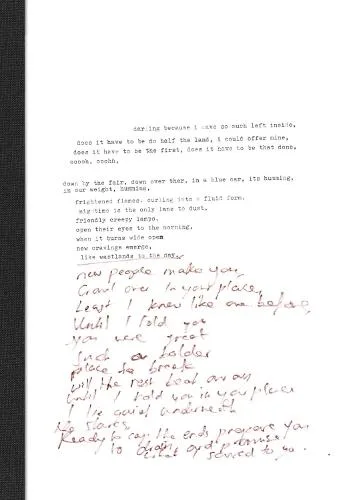 darling because i have so much left inside,
does it have to be do half the land, i could offer mine,
does it have to be the first, does it have to be that done,
ooooh, ooohh.
down by the fair, down over ther, in a blue car, its humming,
in our weight, humming,
frightened flames. curling into a fluid form.
nightime is the only lane to dust.
friendly creepy lamps.
open their eyes to the morning,
when it burns wide open
new cravings emerge,
like wastlands to the day.
new people make you,
Crawl over in your place,
Least I knew like one before,
Until I told you
you were great
Such a colder
place to break
will the rest beat away
until I told you in your place
I lie quiet underneath
the stares
Ready to cry, the ends prepare you
to and promise
I seemed to you.